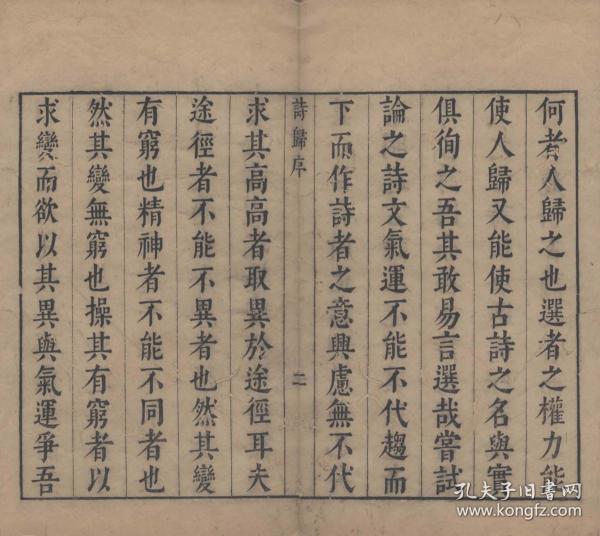 何者人歸之也選者之權力能
使人歸又能使古詩之名與實
俱徇之吾其敢易言選哉嘗試
論之詩文氣運不能不代趨而
下而作詩者之意興慮無不代
詩歸序
二
求其高高者取異於途徑耳夫
途徑者不能不異者也然其變
有窮也精神者不能不同者也
然其變無窮也操其有窮者以
求變而欲以其異與氣運爭吾
孔夫子旧书网
www.kongfz.com